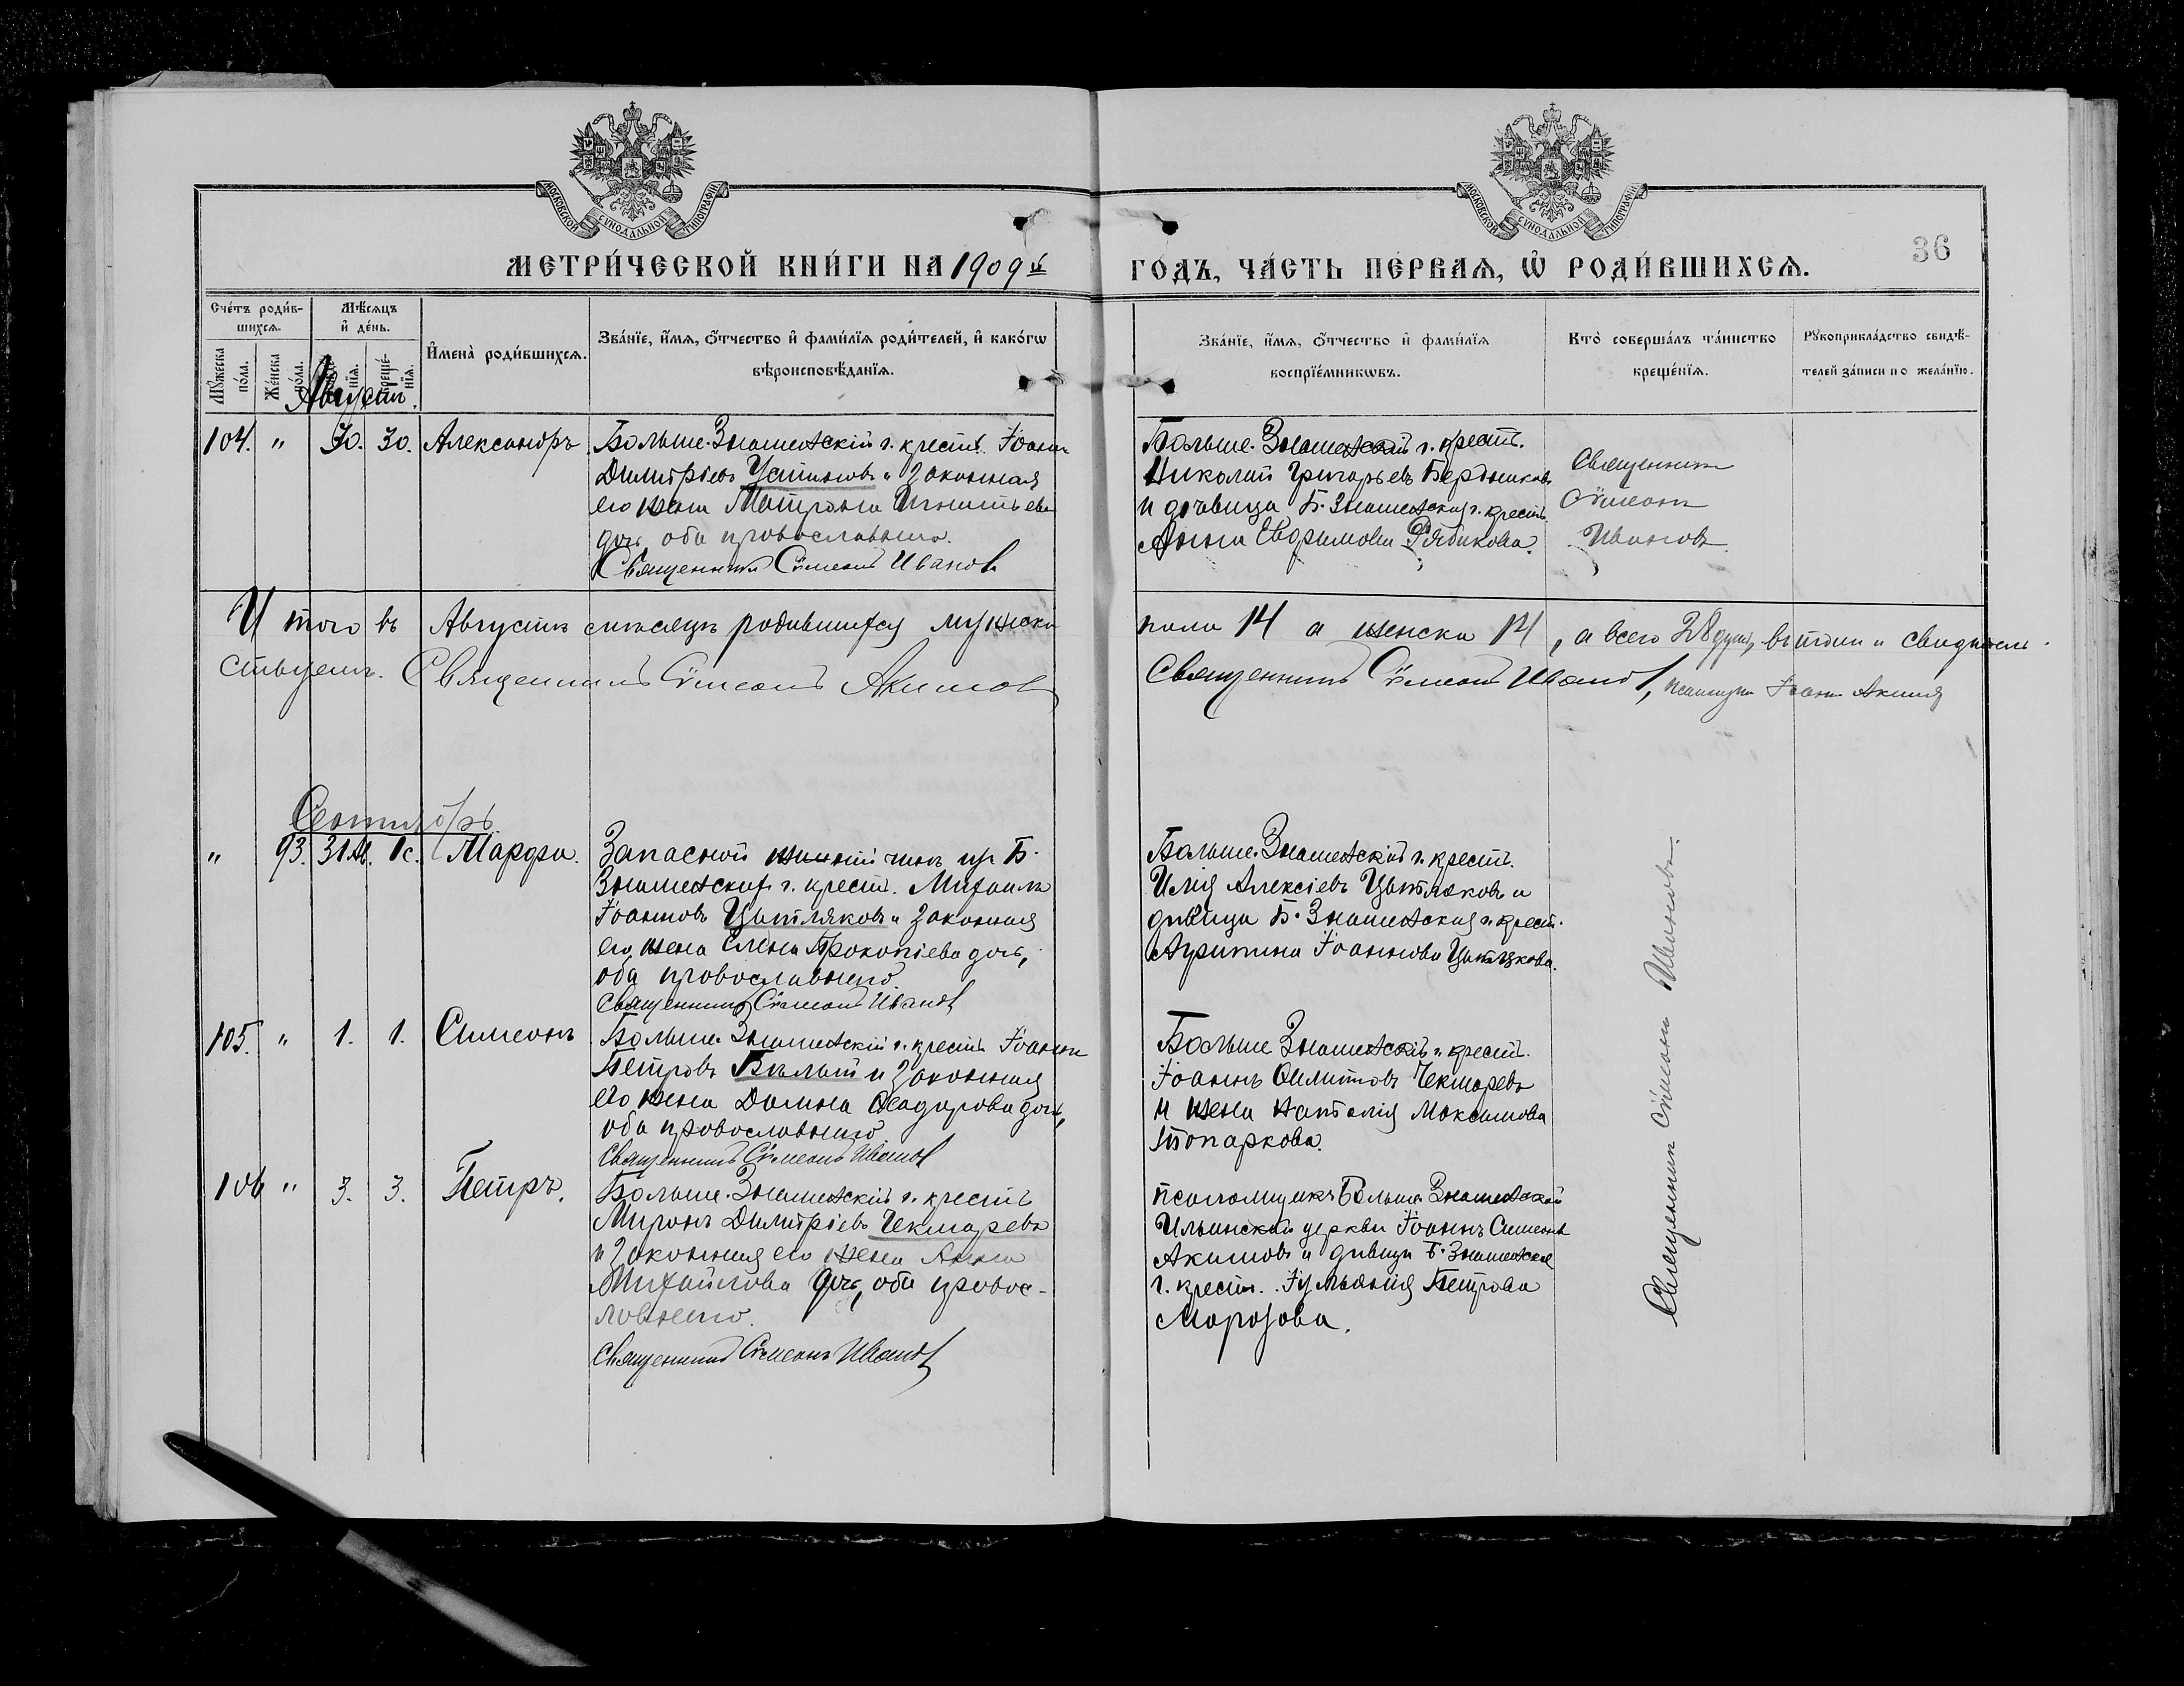 МОСКОВСКОЙ СУНОДАЛЬНОЙ ТИПОГРАФІИ
МОСКОВСКОЙ СУНОДАЛЬНОЙ ТИПОГРАФІИ
36
МЕТРИ́ЧЕСКОЙ КНИ́ГИ НА 1909й ГО́ДЪ, ЧА́СТЬ ПЕ́РВАѦ, Ѡ҆ РОДИ́ВШИХСѦ.
Сче́тъ роди́в-
шихсѧ.
Мѣ́сѧцъ
и҆ де́нь.
Мꙋ́жеска по́ла.
Же́нска по́ла.
И҆мена̀ роди́вшихсѧ.
Зва́нїе, и҆́мѧ, ѻ҆́тчество и҆ фами́лїѧ роди́телей, и҆ како́гѡ
вѣроисповѣ́данїѧ.
Зва́нїе, и҆́мѧ, ѻ҆́тчество и҆ фами́лїѧ
воспрїе́мникѡвъ.
Кто̀ соверша́лъ та́инство
креще́нїѧ.
Рꙋкоприкла́дство свидѣ́-
телей за́писи по жела́нїю.
Августъ.
104. " 30. 30. Александръ
Больше-Знаменскій г. крест. Іоаннъ
Димитріевъ Устиновъ и законная
его жена Матрона Игнатьева
дочь, оба православнаго.
Священникъ Сѵмеонъ Иванов
Больше-Знаменскій г. крест.
Николай Григорьевъ Бердниковъ
и дѣвица Б. Знаменская г. крест.
Анна Евфимова Рябикова.
Священникъ
Сѵмеонъ
Ивановъ.
Итого въ Августѣ мѣсяцѣ родившихся мужска пола 14 а женска 14, а всего 28 душъ, въ томъ и свидѣтель-
ствуемъ. Священникъ Сѵмеонъ Акимов
Священникъ Сѵмеонъ Иванов, псаломщ. Іоаннъ Акимов
Сентябрь.
" 93. 31 Ав. 1 с. Марфа.
Запасной нижній чинъ изъ Б.
Знаменскихъ г. крест. Михаилъ
Іоанновъ Цыпляковъ и законная
его жена Елена Прокопіева дочь,
оба православнаго.
Священникъ Сѵмеонъ Иванов
Больше-Знаменскій г. крест.
Илія Алексіевъ Цыпляковъ и
дѣвица Б. Знаменская г. крест.
Агрипина Іоаннова Цыплякова.
105. " 1. 1. Симеонъ
Больше-Знаменскій г. крест. Іоаннъ
Петровъ Бѣлый и законная
его жена Домна Ѳеодорова дочь,
оба православнаго.
Священникъ Сѵмеонъ Иванов
Больше Знаменскій г. крест.
Іоаннъ Филиповъ Чекмаревъ
и жена Наталія Максимова
Топаркова.
106 " 3. 3. Петръ.
Больше-Знаменскій г. крест.
Миронъ Димитріевъ Чекмаревъ
и законная его жена Анна
Михайлова дочь, оба правос-
лавнаго.
Священникъ Сѵмеонъ Иванов
псаломщикъ Больше-Знаменской
Ильинской церкви Іоаннъ Симеоновъ
Акимовъ и дѣвица Б. Знаменская
г. крест. Іуліанія Петрова
Морозова.
Священник Сѵмеонъ Ивановъ.